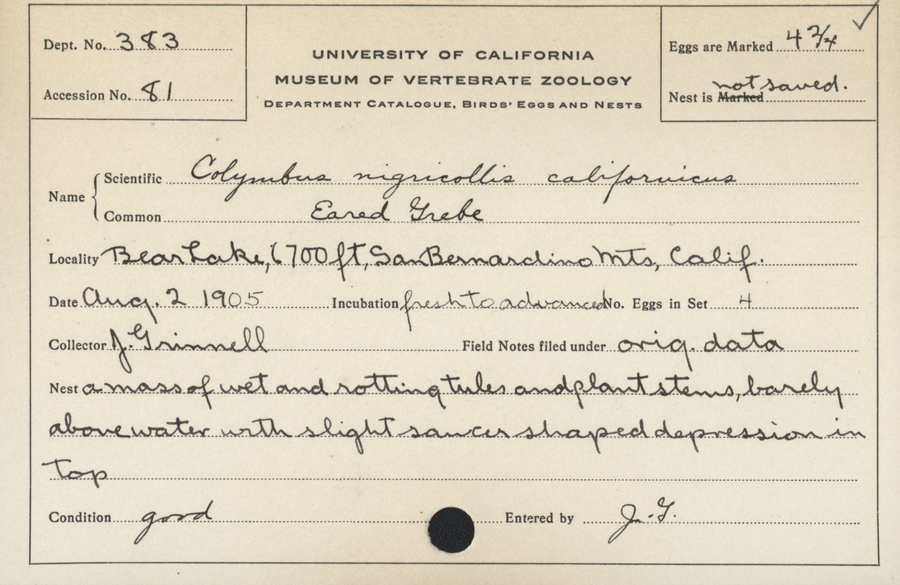 Dept. No. 383
Accession No. 81
UNIVERSITY OF CALIFORNIA
MUSEUM OF VERTEBRATE ZOOLOGY
DEPARTMENT CATALOGUE, BIRDS' EGGS AND NESTS
Eggs are Marked 4 2/4
not saved.
Nest is Marked
Name { Scientific Colymbus nigricollis californicus
Common Eared Grebe
Locality Bear Lake, 6700 ft, San Bernardino Mts, Calif.
Date Aug. 2 1905 Incubation fresh to advanced No. Eggs in Set 4
Collector J. Grinnell Field Notes filed under orig. data
Nest a mass of wet and rotting tules and plant stems, barely
above water with slight saucer shaped depression in
top
Condition good Entered by J. G.